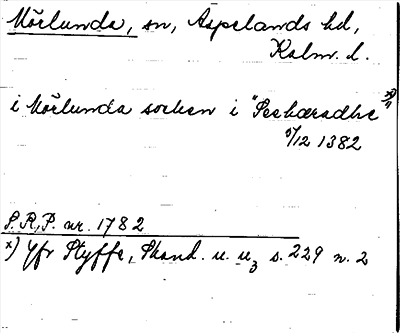 Mörlunda, sn, Aspelands hd,
Kalm. l.
i Mörlunda socken i "Sechæradhe" x)
5/12 1382
S.R.P. nr. 1782
x) Yfr Styffe, Skand. u. u3 s. 229 n. 2